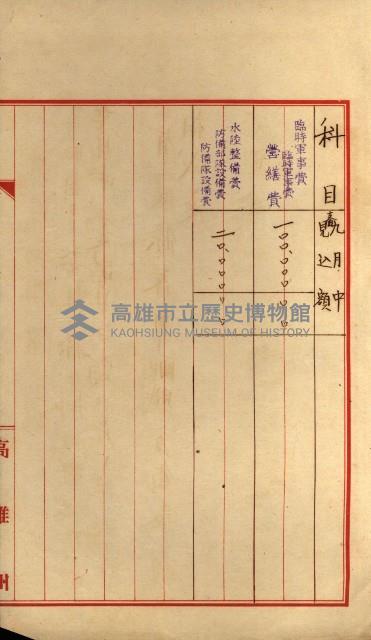 科目
九月中
見込額
臨時軍事費
臨時軍事費
營繕費
一〇〇,〇〇〇〇〇
水陸整備費
防備部隊設備費
防備隊設備費
二〇,〇〇〇〇〇
高雄市立歷史博物館
KAOHSIUNG MUSEUM OF HISTORY
高雄州